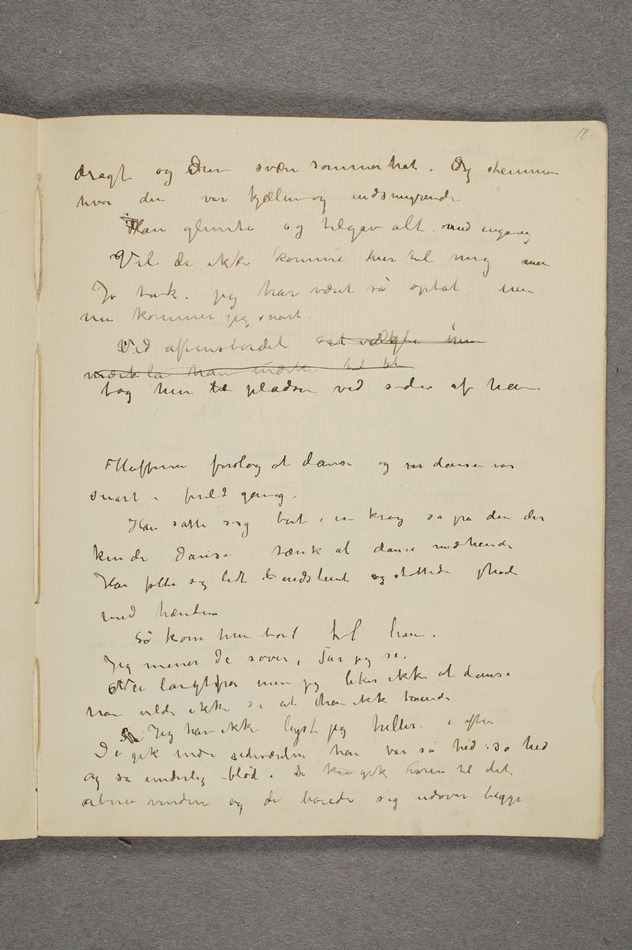 18.
dragt og den svær sommerhat. Og stemmen
hvor den var kjælen og indsmigrende
Han glemte og tilgav alt med engang
Vil de ikke komme her til mig mer
Jo tak. jeg har været så optat men
nu kommer jeg snart.
Ved aftensbordet
tog hun pladsen ved siden af ham.
foreslog at danse og dansen var
snart i fuld gang.
Han satte sig bort i en krog så på den der
kunde danse tænk at danse med hende
Han følte sig lidt og støttede
med hænderne
Så kom hun bort til ham.
Jeg mener De sover, sa jeg se.
Nei langtifra men jeg liker ikke at danse
han vilde ikke si at han ikke kunde
Jeg har ikke lyst jeg heller.
De gik under han var så hed: så hed
og så underlig blød. De gik frem til det
åbne vindu og de bøiede sig udover begge